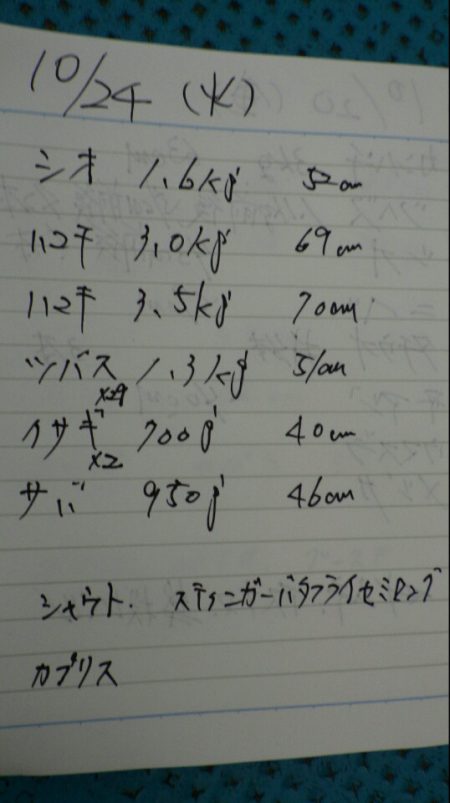 10/24 (火)
シオ 1.6kg 52cm
ハマチ 3.0kg 69cm
ハマチ 3.5kg 70cm
ツバス 1.3kg 51cm
イサギ 700g 40cm
×2
サバ 950g 46cm
シャウト. スティンガーバタフライセミロング
カブリス